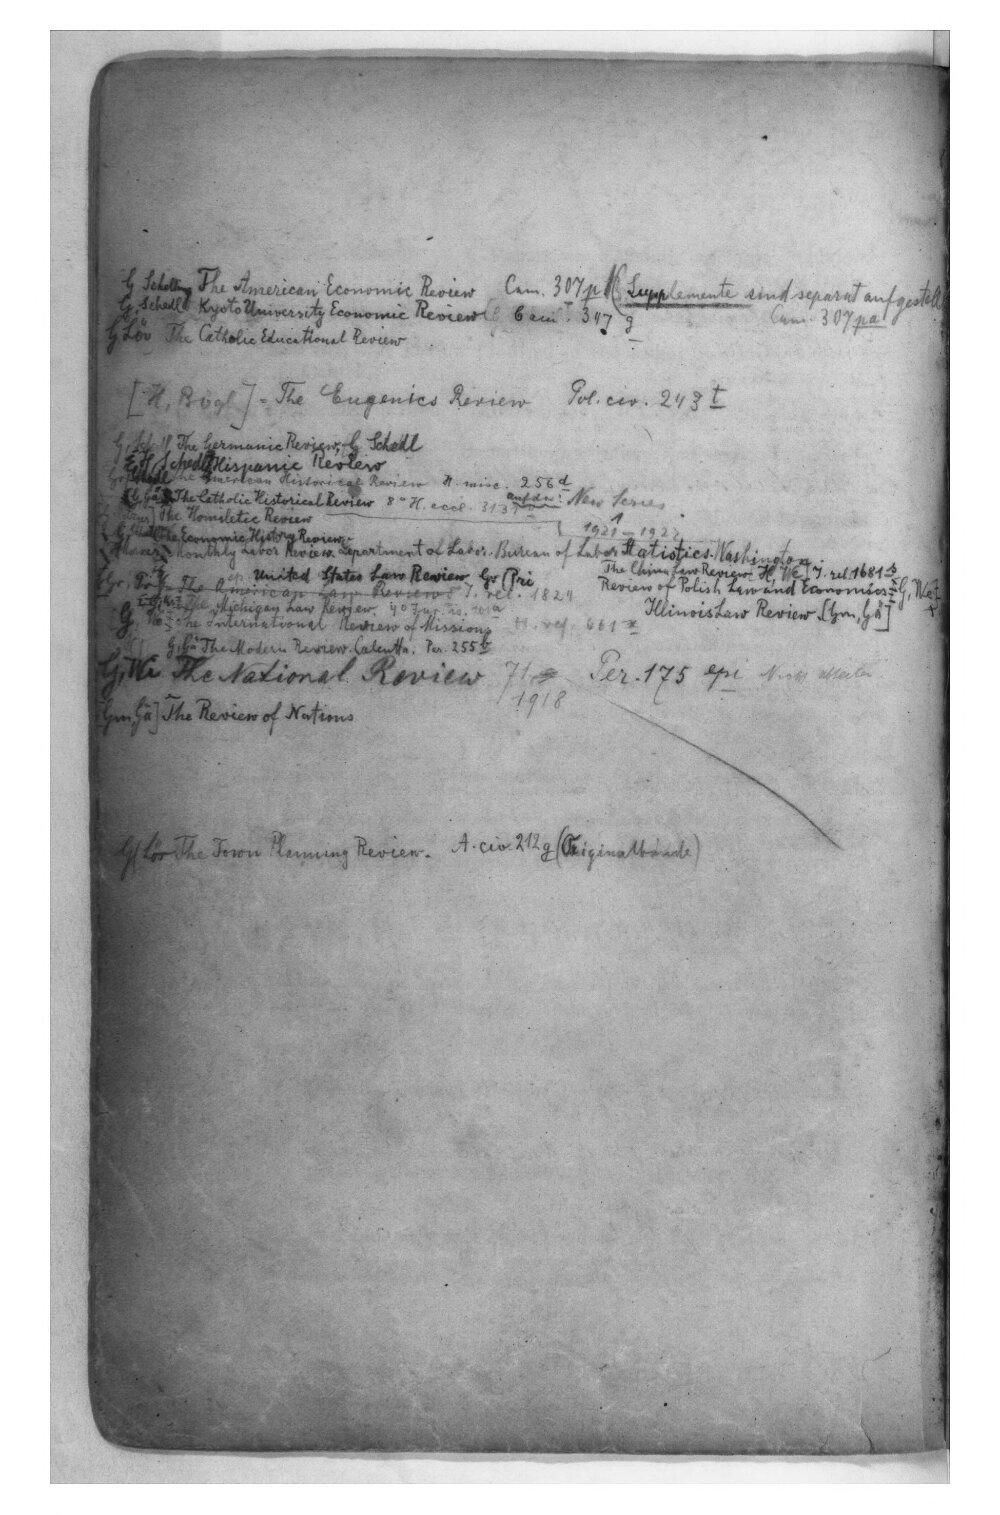 G Schelling The American Economic Review Cam. 307 p (Supplemente sind separat aufgestellt
G, Schedl Kyoto University Economic Review Cam. 347 g Cam. 307 pa
G Löv The Catholic Educational Review
[H, Bögl] - The Eugenics Review Pol. civ. 243 t
G, Schedl The Germanic Review, G Schedl
Schedl Hispanic Review
The American Historical Review H. misc. 256 d
The Catholic Historical Review 8° H. eccl. 313 New Series
The Homiletic Review 1 1921-1922
The Economic History Review
Monthly Labor Review. Department of Labor. Bureau of Labor Statistics. Washington
United States Law Review Gr (Pri The China Law Review H, We J. rel. 1681 s
The American Law Review J. rel. 1824 Review of Polish Law and Economics G, We
The Michigan Law Review, 4° Illinois Law Review [Gm, Gä]
G, We The International Review of Missions H. ref. 661 x
G, Gä The Modern Review. Calcutta. Per. 255 t
G, We The National Review 71 Per. 175 epi
1918
Gm, Gä] The Review of Nations
G Lör The Town Planning Review. A. civ. 212 g (Originalbände)